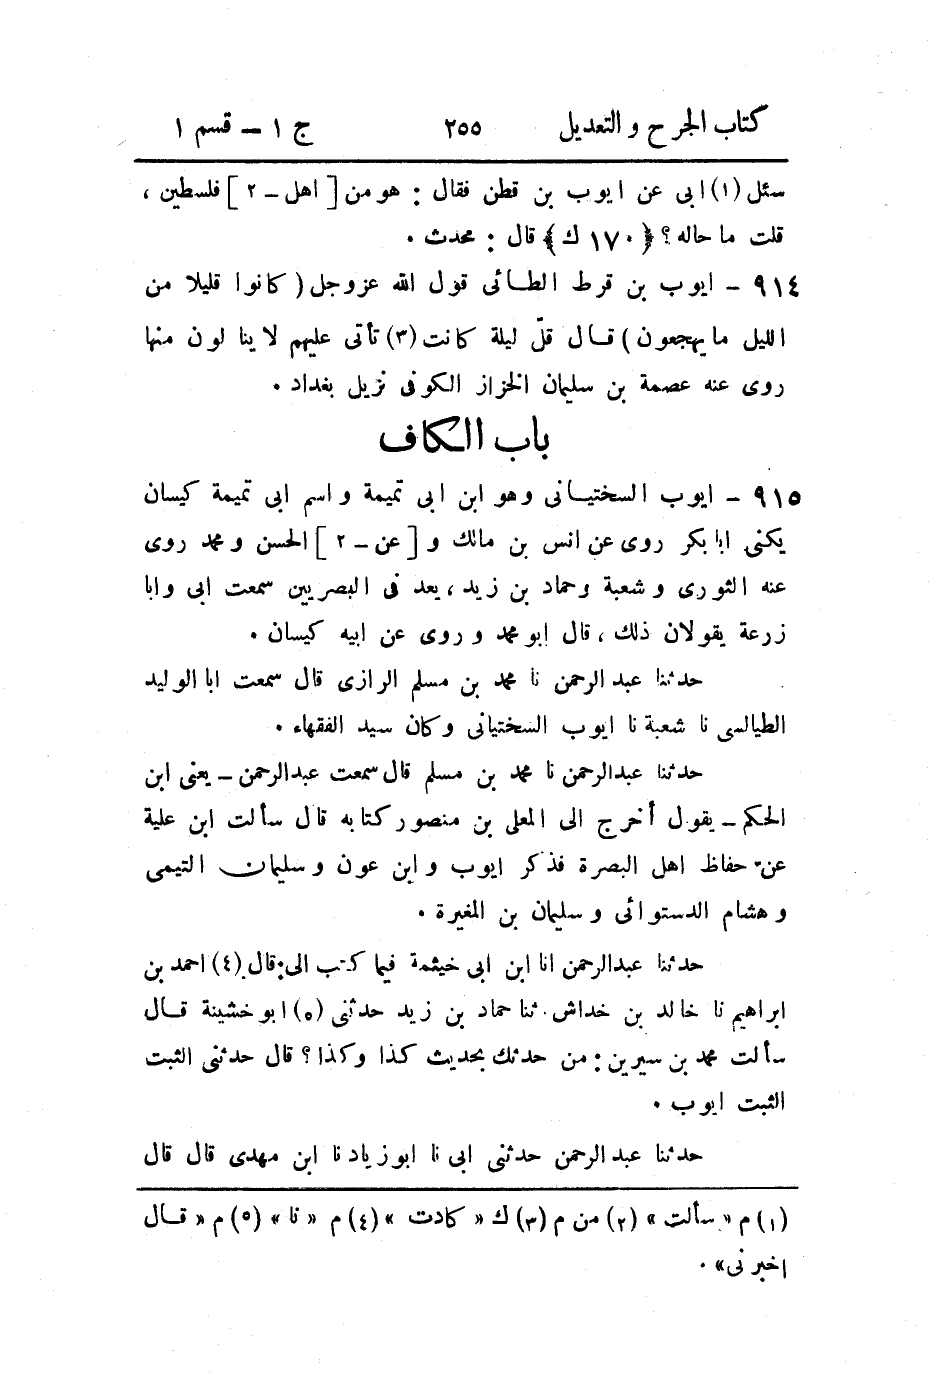 كتاب الجرح و التعديل ٢٥٥ ج ١ – قسم ١
سئل (١) ابى عن ايوب بن قطن فقال : هو من [ اهل – ٢ ] فلسطين ،
قلت ما حاله ؟ ﴿ ١٧٠ ك ﴾ قال : محدث .
٩١٤ – ايوب بن قرط الطائى قول الله عزوجل ( كانوا قليلا من
الليل ما يهجعون ) قال قلّ ليلة كانت (٣) تأتى عليهم لا ينا لون منها
روى عنه عصمة بن سليمان الخزاز الكوفى نزيل بغداد .
باب الكاف
٩١٥ – ايوب السختيانى وهو ابن ابى تميمة و اسم ابى تميمة كيسان
يكنى ابا بكر روى عن انس بن مالك و [ عن – ٢ ] الحسن و محمد روى
عنه الثورى و شعبة وحماد بن زيد ، يعد فى البصريين سمعت ابى وابا
زرعة يقولان ذلك ، قال ابو محمد و روى عن ابيه كيسان .
حدثنا عبد الرحمن نا محمد بن مسلم الرازى قال سمعت ابا الوليد
الطيالسى نا شعبة نا ايوب السختيانى وكان سيد الفقهاء .
حدثنا عبدالرحمن نا محمد بن مسلم قال سمعت عبدالرحمن – يعنى ابن
الحكم – يقول أخرج الى المعلى بن منصور كتابه قال سألت ابن علية
عن حفاظ اهل البصرة فذكر ايوب و ابن عون و سليمان التيمى
و هشام الدستوائى و سليمان بن المغيرة .
حدثنا عبدالرحمن انا ابن ابى خيثمة فيما كتب الى : قال (٤) احمد بن
ابراهيم نا خالد بن خداش ثنا حماد بن زيد حدثنى (٥) ابو خشينة قال
سألت محمد بن سيرين : من حدثك بحديث كذا وكذا ؟ قال حدثنى الثبت
الثبت ايوب .
حدثنا عبد الرحمن حدثنى ابى نا ابو زياد نا ابن مهدى قال قال
(١) م « سألت » (٢) من م (٣) ك « كادت » (٤) م « نا » (٥) م « قال
اخبرنى » .